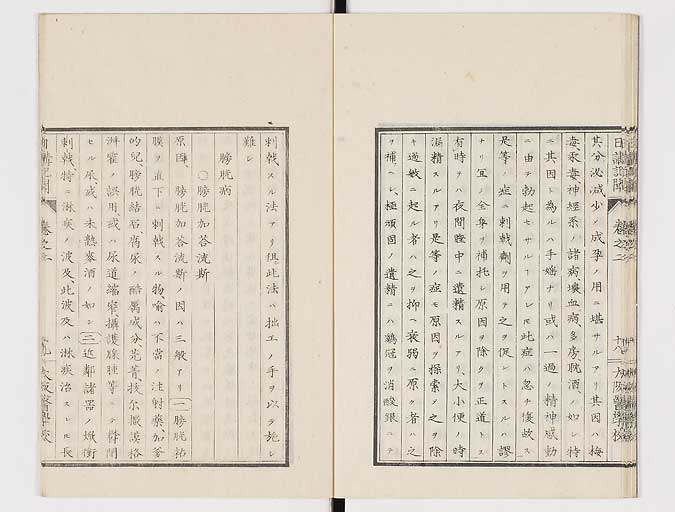 日講記聞 巻之二 十八 大阪醫學校
其分泌減少ノ成孕ノ用ニ堪サルアリ其因ハ梅
毒、汞毒神經系ノ諸病、壞血病、多房、耽酒、ノ如シ特
ニ其因ト為ルハ手婬ナリ或ハ一過ノ精神感動
ニ由テ勃起セサルヿアレ𪜈此症ハ忽チ復故ス
是等ノ症ニ刺戟劑ヲ用テ之ヲ促ントスルハ謬
ナリ宜ク全身ヲ補托シ原因ヲ除クヲ正道トス
有時ヲハ夜間睡中ニ遺精スルアリ、大小便ノ時
漏精スルアリ是等ノ症モ原因ヲ探索メ之ヲ除
キ過敏ニ起ル者ハ之ヲ抑ヘ衰弱ニ原ク者ハ之
ヲ補ヘシ、極頑固ノ遺精ニハ鷄冠ヲ消酸銀ニテ
刺戟スル法アリ但此法ハ拙工ノ手ヲ以テ施シ
難シ
膀胱病
○膀胱加荅流斯
原因、膀胱加荅流斯ノ因ハ三般アリ(一)膀胱粘
膜ヲ直下ニ刺戟スル物、喻ハ不當ノ注射藥加爹
的兒、膀胱結石腐尿ノ酷厲成分、芫菁拔尓撒謨格
淋霍ノ誤用或ハ尿道縮窄、攝護腺腫等ニテ欝閉
セル尿或ハ未熟麥酒ノ如シ(二)近鄰諸器ノ焮衝
刺戟特ニ淋疾ノ波及、此波及ハ淋疾治スレ𪜈長
巻之二 十九 大阪醫學校